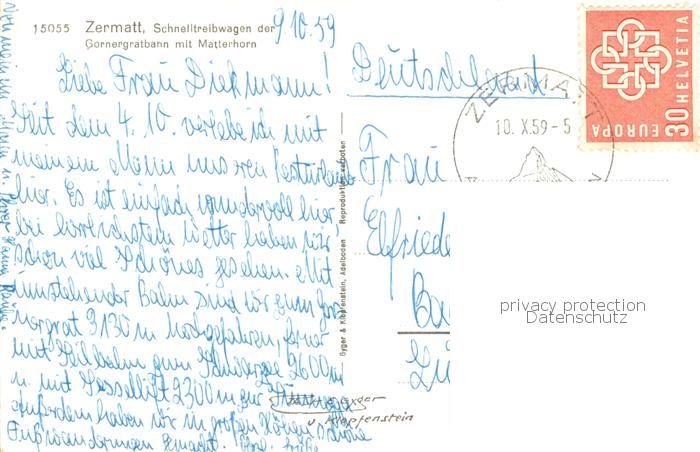 15055 Zermatt, Schnelltreibwagen der
Gornergratbahn mit Matterhorn
9.10.59
Liebe Frau Diekmann!
Seit dem 4. 10. verlebe ich mit
meinem Mann unseren
hier. Es ist einfach wundervoll hier,
bei herrlichstem Wetter haben wir
schon viel Schönes gesehen. Mit
umstehender Bahn sind wir zum Gor-
nergrat 3135 m hochgefahren, ferner
mit Seilbahn zum 2600 m
u. mit Sessellift 2300 m zur
Außerdem haben wir in großen Höhen schöne
Fußwanderungen gemacht.
Gyger & Klopfenstein, Adelboden
Reproduktion verboten
Gyger
u. Klopfenstein
Deutschland
Frau
Elfriede
HELVETIA
30
EUROPA
ZERMATT
10. X.59-5
privacy protection
Datenschutz